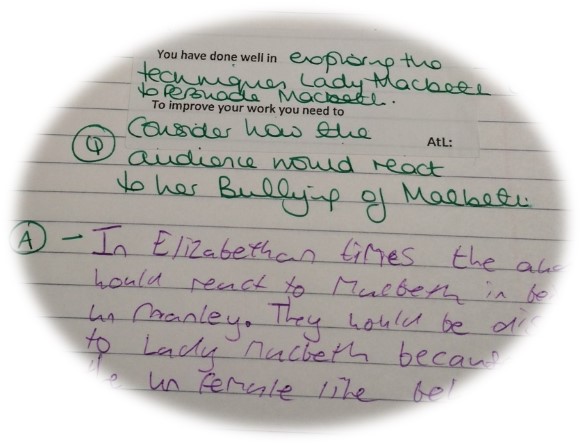 You have done well in exploring the
techniques Lady Macbeth
to Persuade Macbeth.
To improve your work you need to
Consider how the
AtL:
Q audience would react
to her Bullying of Macbeth.
A - In Elizabethan times the
would react to Macbeth in
un manley. They would be
to Lady Macbeth
un female like